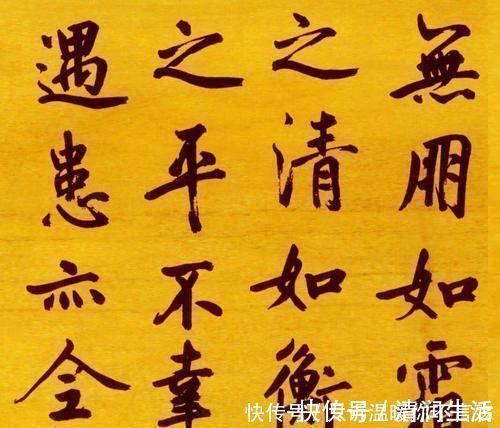 無朋如雪
之清如衡
之平不幸
遇患亦
快传号/清润生活
快传号